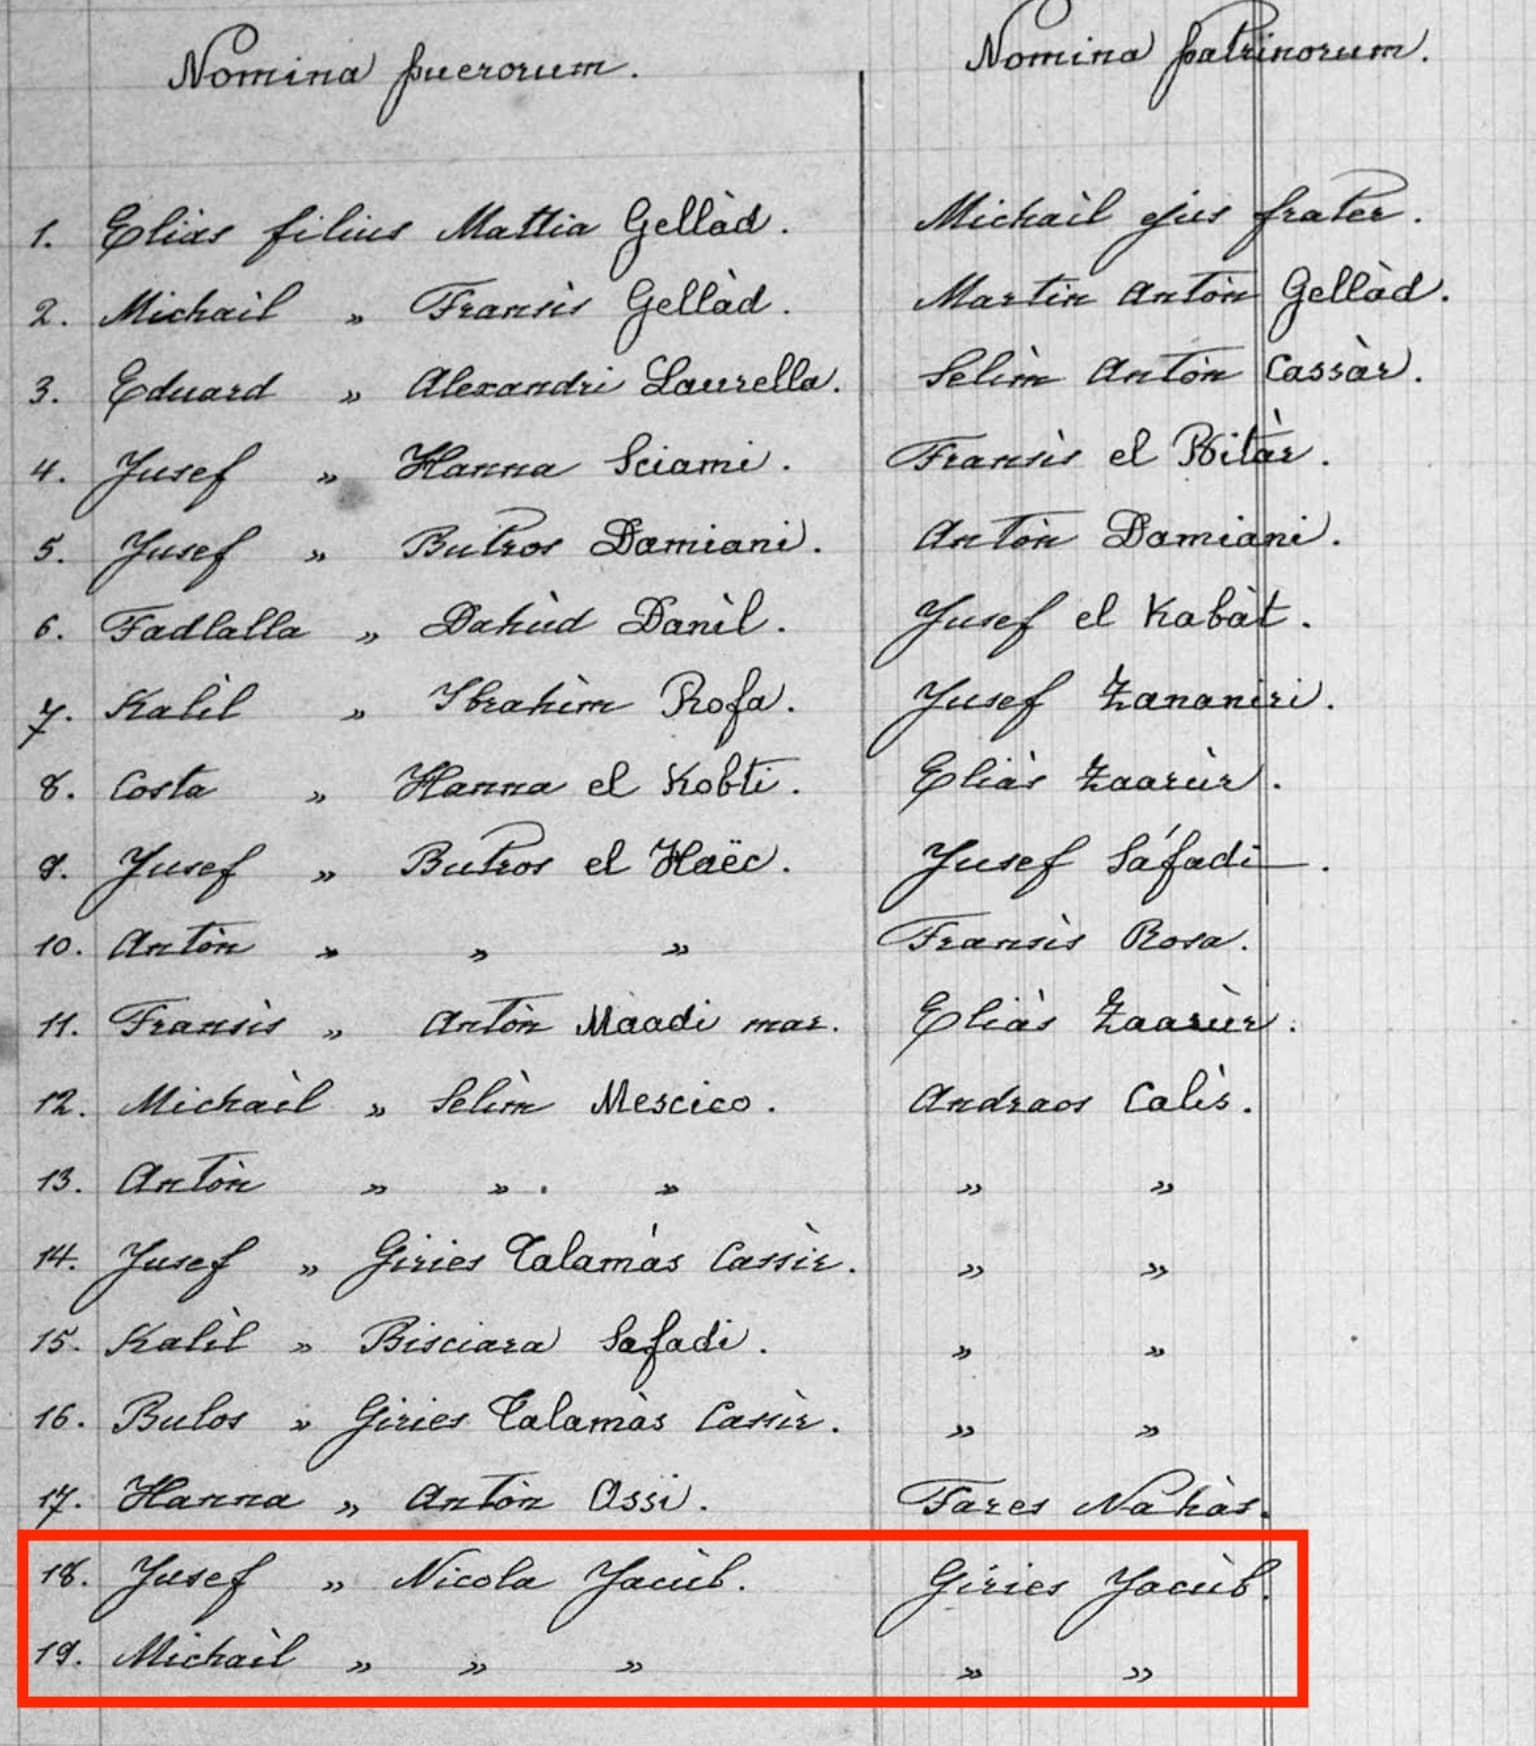 Nomina puerorum. Nomina patrinorum.
1. Eliàs filius Mattia Gellàd. Michaìl ejus frater.
2. Michaìl » Fransìs Gellàd. Martin Antòn Gellàd.
3. Eduard » Alexandri Laurella. Selìm Antòn Cassàr.
4. Jusef » Hanna Sciami. Fransìs el Bitàr.
5. Jusef » Butros Damiani. Antòn Damiani.
6. Fadlalla » Dahùd Danìl. Jusef el Kabàt.
7. Kalìl » Ibrahìm Rofa. Jusef Zananiri.
8. Costa » Hanna el Kobti. Eliàs Zaarùr.
9. Jusef » Butros el Haëc. Jusef Sáfadi.
10. Antòn » » » Fransìs Rosa.
11. Fransìs » Antòn Maadi mar. Eliàs Zaarùr.
12. Michaìl » Selìm Mescico. Andraos Calìs.
13. Antòn » » » » »
14. Jusef » Giries Talamàs Cassìr. » »
15. Kalìl » Bisciara Safadi. » »
16. Bulos » Giries Talamàs Cassìr. » »
17. Hanna » Antòn Assi. Fares Nahàs.
18. Jusef » Nicola Jacùb. Giries Jacùb.
19. Michaìl » » » » »